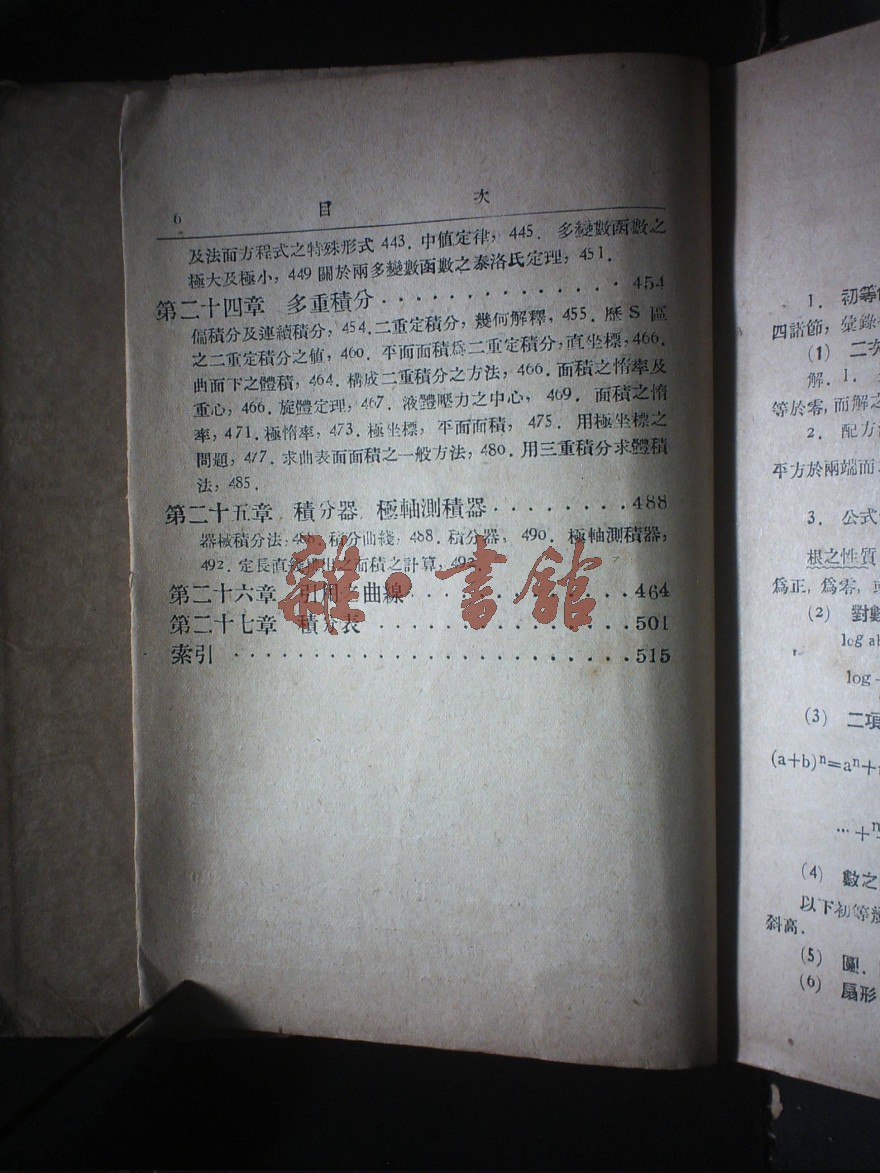 6 目 次
及法面方程式之特殊形式 443. 中值定律, 445. 多變數函數之
極大及極小, 449 關於兩多變數函數之泰洛氏定理, 451.
第二十四章 多重積分 · · · · · · · · · · · · · 454
偏積分及連續積分, 454. 二重定積分, 幾何解釋, 455. 歷 S 區
之二重定積分之值, 460. 平面面積爲二重定積分, 直坐標, 466.
曲面下之體積, 464. 構成二重積分之方法, 466. 面積之惰率及
重心, 466. 旋體定理, 467. 液體壓力之中心, 469. 面積之惰
率, 471. 極惰率, 473. 極坐標, 平面面積, 475. 用極坐標之
問題, 477. 求曲表面面積之一般方法, 480. 用三重積分求體積
法, 485.
第二十五章 積分器 極軸測積器 · · · · · · · · 488
器械積分法, 488. 積分曲綫, 488. 積分器, 490. 極軸測積器,
492. 定長直綫 之面積之計算,
第二十六章 引用之曲線 · · · · · · · · · · · · 464
第二十七章 積分表 · · · · · · · · · · · · · · 501
索引 · · · · · · · · · · · · · · · · · · · · · 515
雜·書館
1. 初等
四諸節, 彙錄
(1) 二次
解. 1.
等於零, 而解之
2. 配方
平方於兩端而
3. 公式
根之性質
爲正, 爲零, 或
(2) 對數
log ab
log
(3) 二項
(a+b)ⁿ=aⁿ+
… + n
(4) 數之
以下初等幾
斜高.
(5) 圓.
(6) 扇形